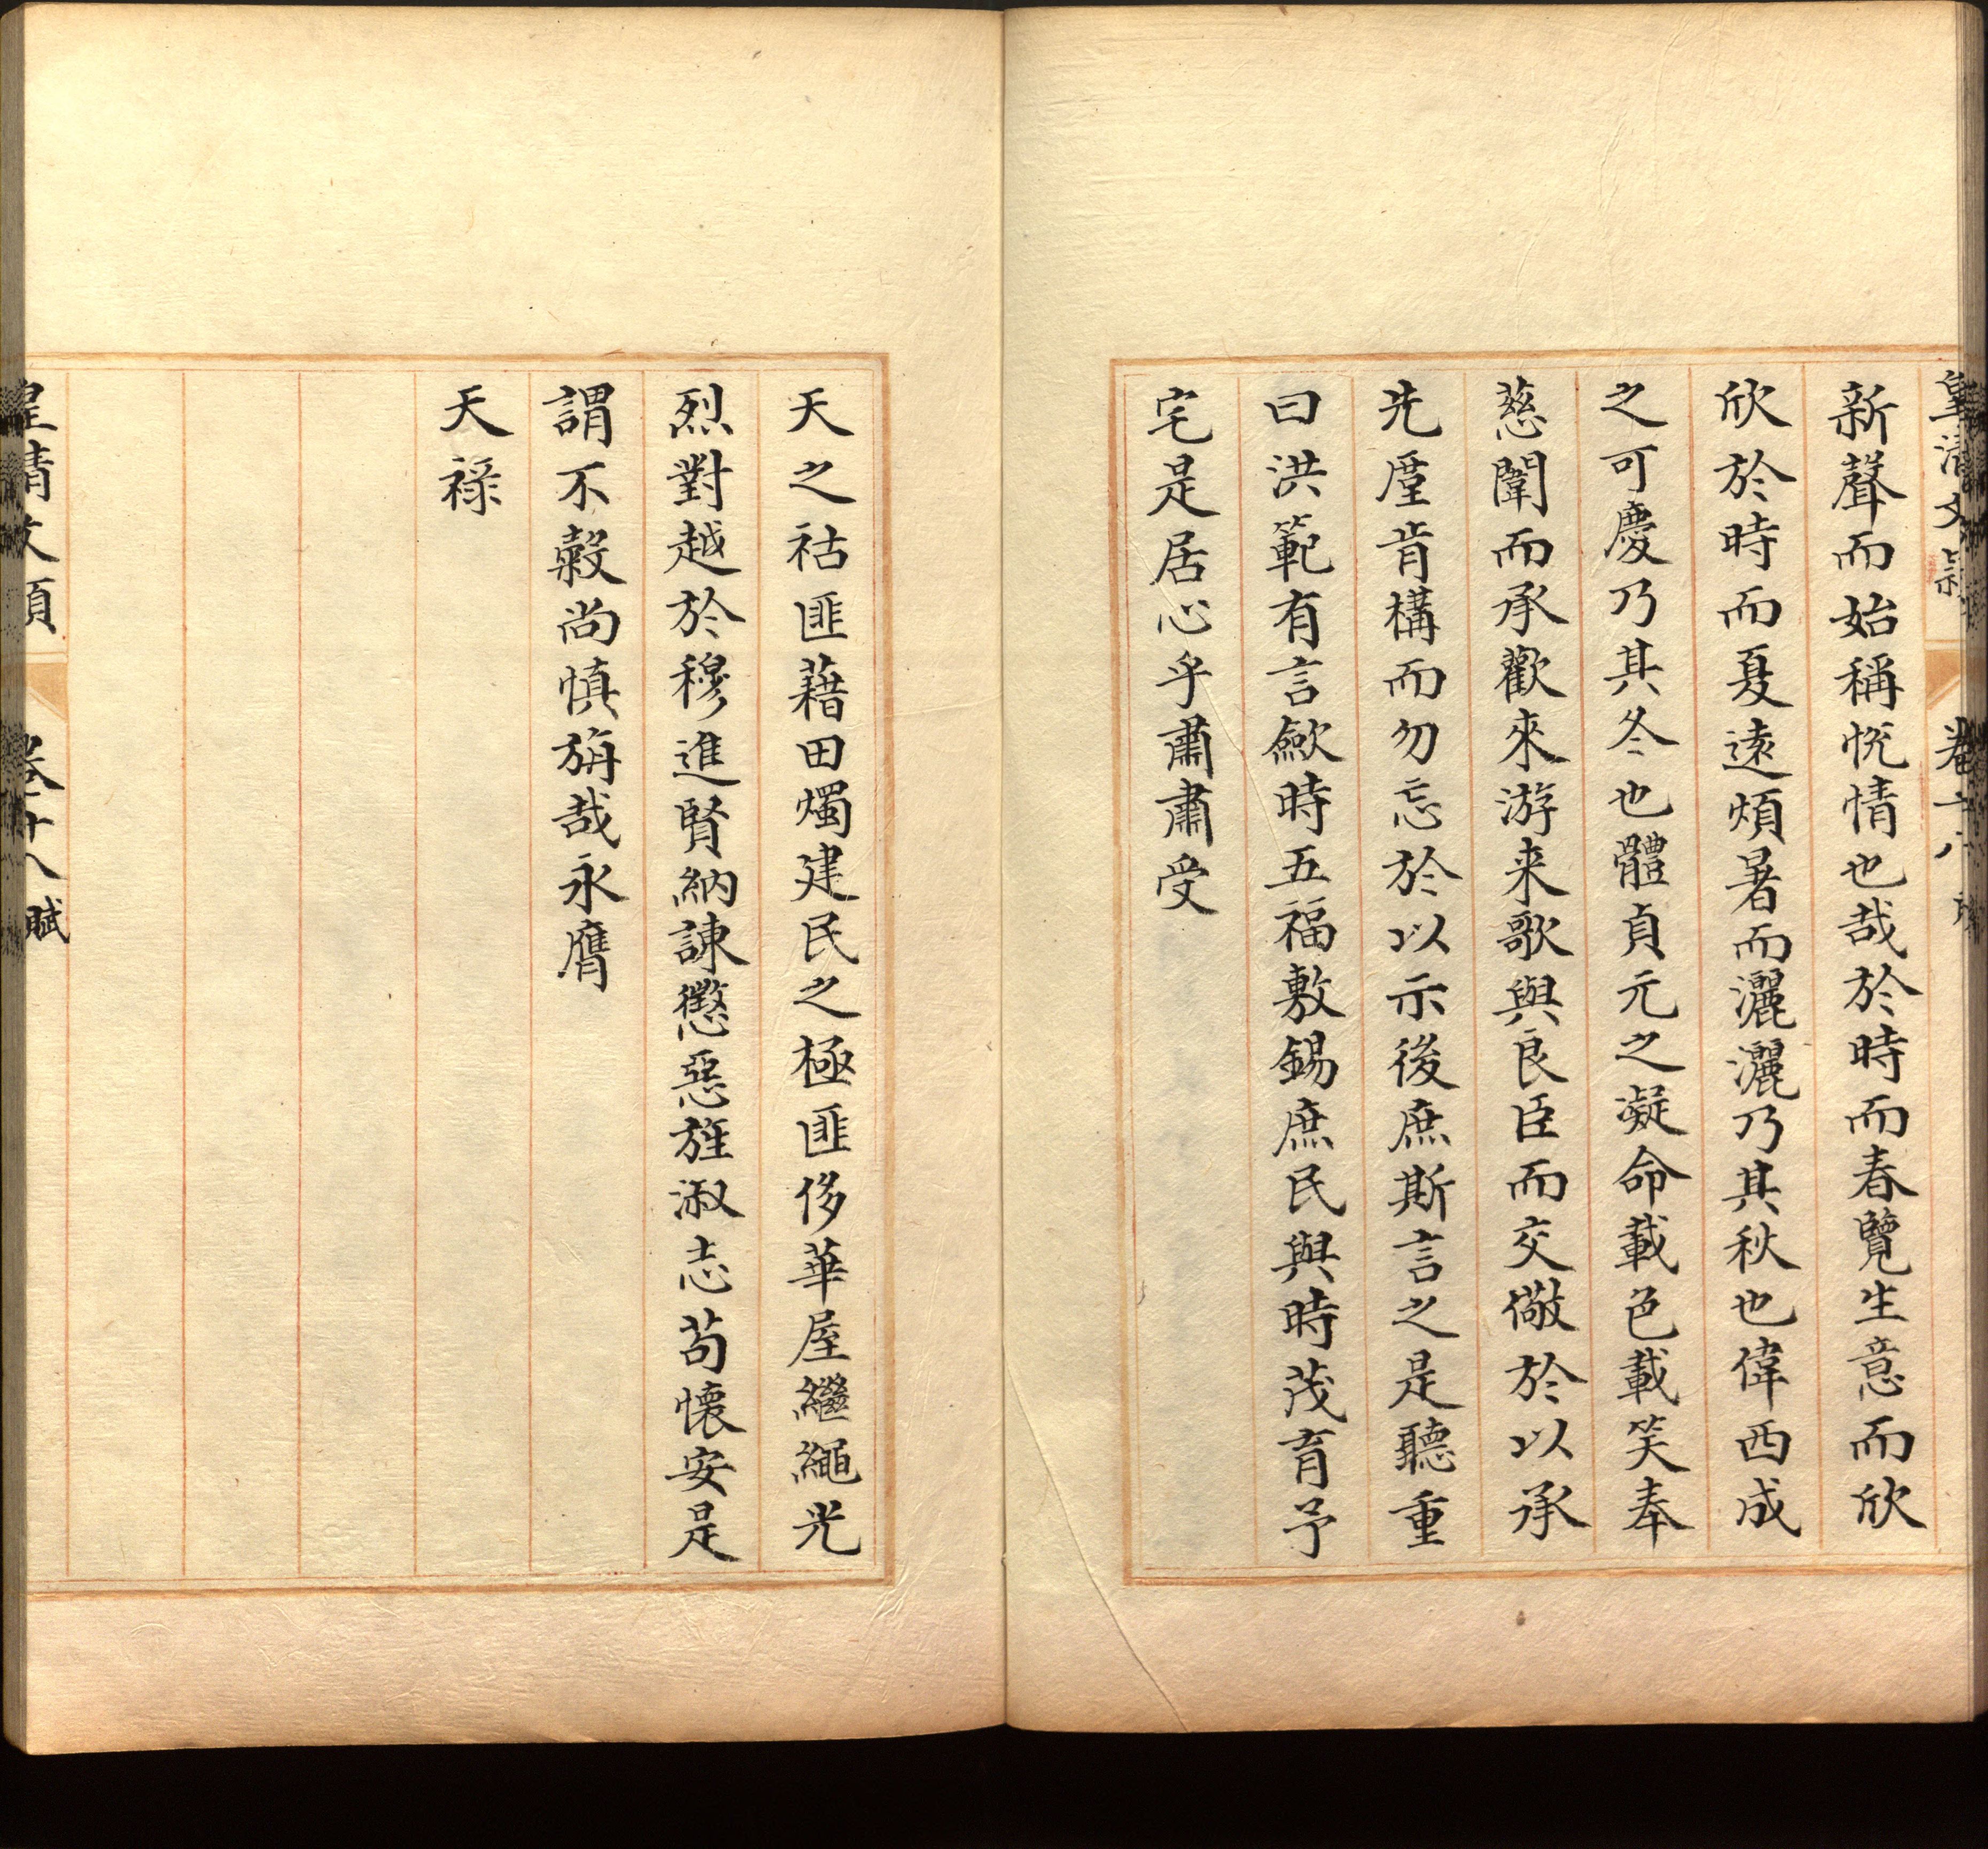 皇清文穎 卷十八 賦
新聲而始稱恱情也哉於時而春覽生意而欣
欣於時而夏遠煩暑而灑灑乃其秋也偉西成
之可慶乃其冬也體貞元之凝命載色載笑奉
慈闈而承歡來游来歌與良臣而交儆於以承
先㕓肯構而勿忘於以示後庶斯言之是聽重
曰洪範有言歛時五福敷錫庶民與時茂育予
宅是居心乎肅肅受
天之祜匪藉田燭建民之極匪侈華屋繼繩光
烈對越於穆進賢納諫懲惡旌淑志苟懷安是
謂不穀尚慎旃哉永膺
天祿
皇清文穎 卷十八 賦